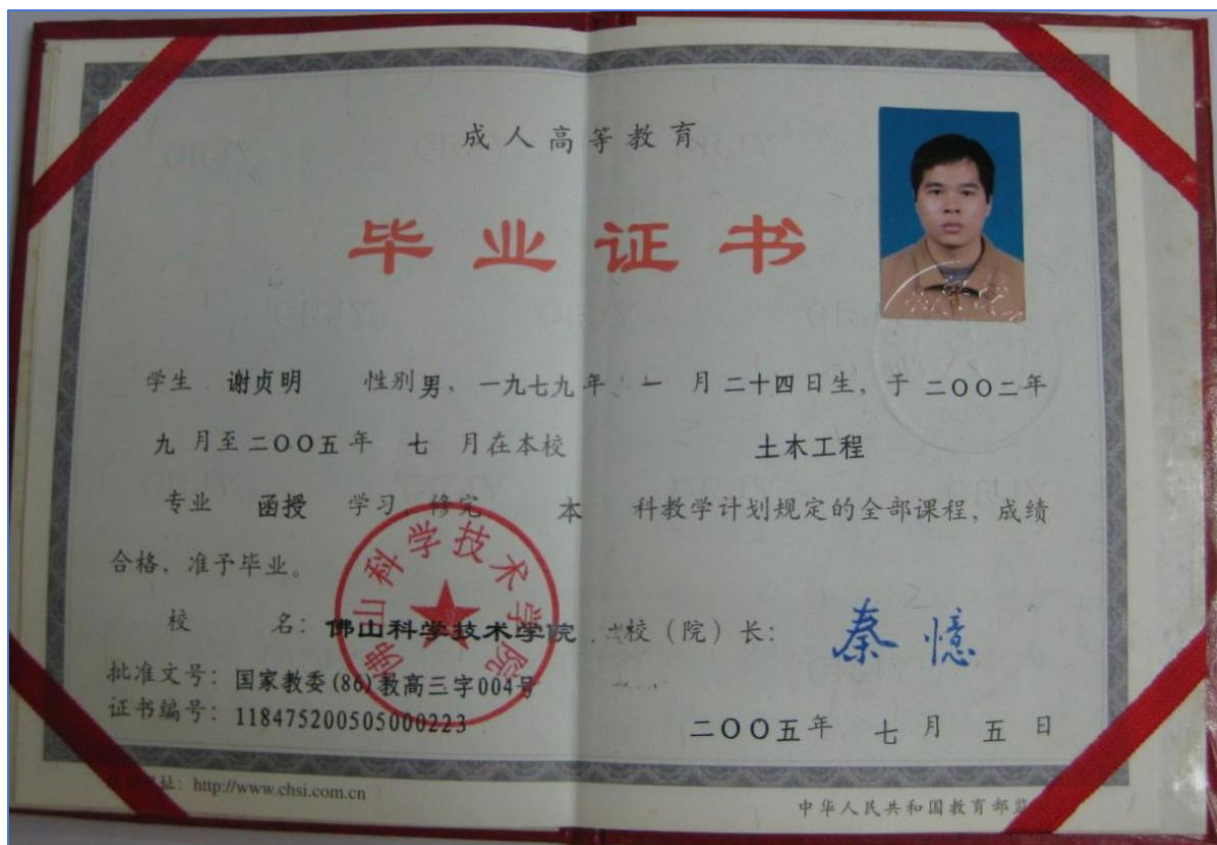 成人高等教育
毕业证书
学生 谢贞明 性别 男，一九七九年 一 月二十四日生，于二〇〇二年
九 月至二〇〇五年 七 月在本校 土木工程
专业 函授 学习，修完 本 科教学计划规定的全部课程，成绩
合格，准予毕业。
校 名：佛山科学技术学院 校（院）长：秦憶
批准文号：国家教委(86)教高三字004号
证书编号：118475200505000223
二〇〇五年 七 月 五 日
佛山科学技术学院
址：http://www.chsi.com.cn
中华人民共和国教育部监